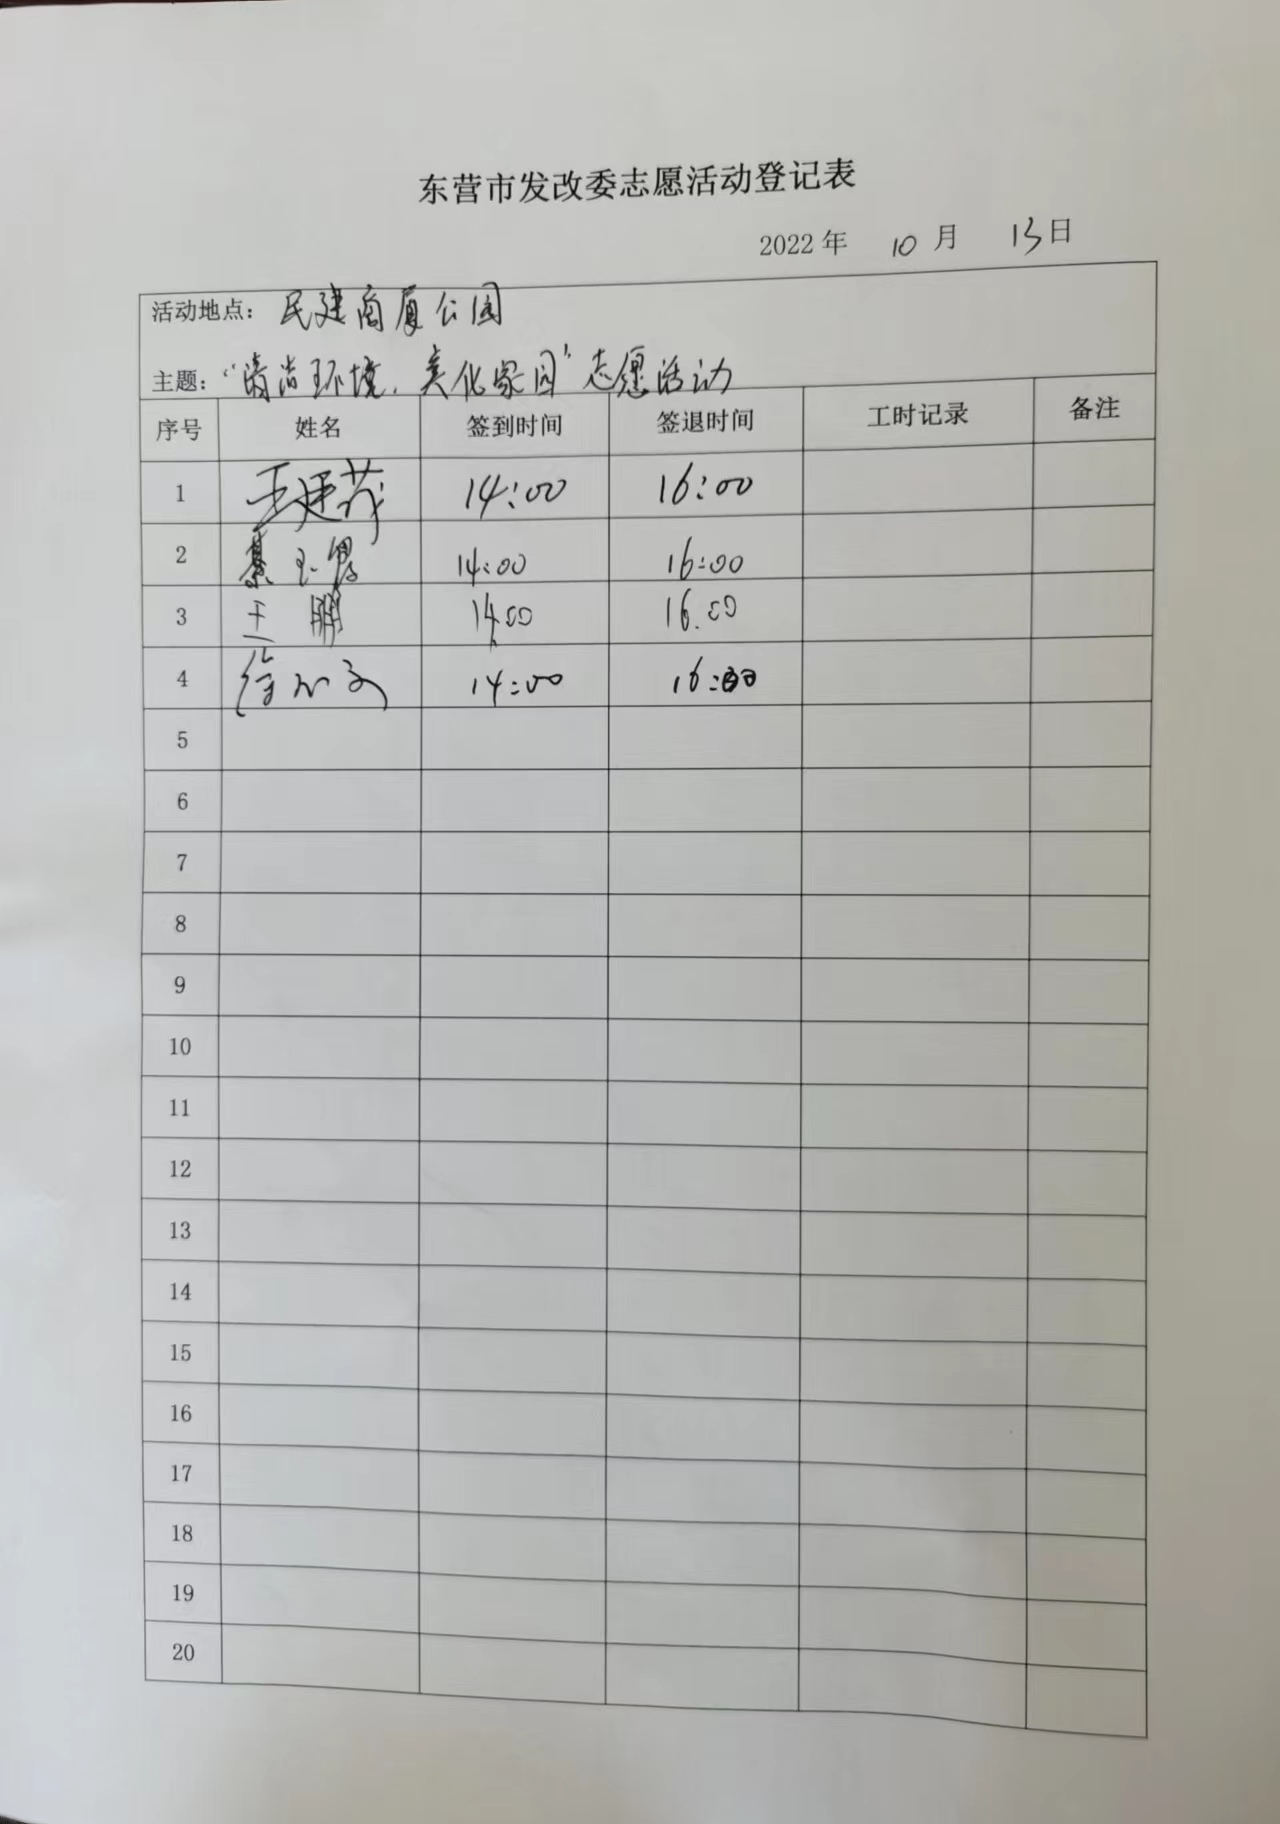 东营市发改委志愿活动登记表
2022年 10月 13日
活动地点：民建商厦公园
主题：“清洁环境，美化家园”志愿活动
序号 姓名 签到时间 签退时间 工时记录 备注
1 王廷茂 14:00 16:00
2 綦玉 14:00 16:00
3 王鹏 14:00 16:00
4 徐 14:00 16:00
5
6
7
8
9
10
11
12
13
14
15
16
17
18
19
20